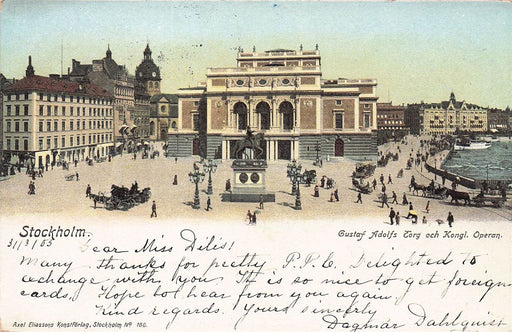 Stockholm.
Gustaf Adolfs Torg och Kongl. Operan.
31/3/05
Dear Miss Dilis!
Many thanks for pretty P.P.C. Delighted to
exchange with you. It is so nice to get foreign
cards. Hope to hear from you again,
Kind regards. Yours sincerely
Dagmar Dahlquist
Axel Eliassons Konstförlag, Stockholm Nº 160.